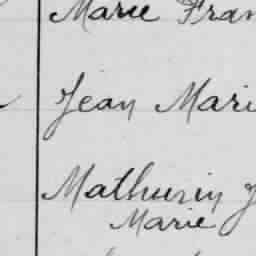 Marie Fran
Jean Mari
Mathurin J
Marie